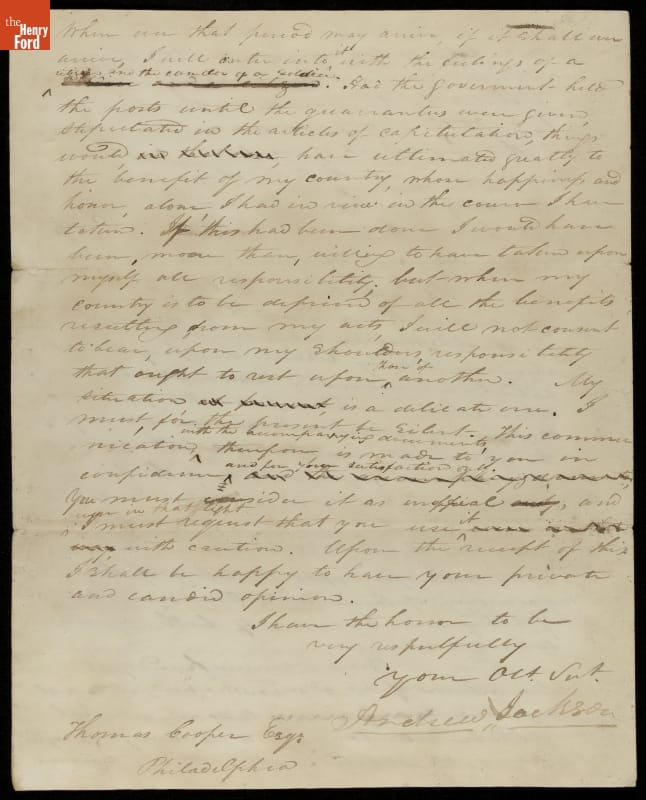 the
Henry
Ford
When ever that period may arrive, if it shall ever
arrive, I will enter into it with the feelings of a
citizen, and the candor of a soldier. Had the Goverment held
the posts until the guarantees were given,
stipulated in the articles of capitulation, things
would have ultimated greatly to
the benefit of my country, whose happiness and
honor, alone I had in view in the course I have
taken. If this had been done I would have
been, more than, willing to have taken upon
myself all responsibility; but when my
country is to be deprived of all the benefits
resulting from my acts, I will not consent
to bear, upon my shoulders responsibility
that ought to rest upon those of another. My
situation is a delicate one. I
must for the present be silent. This commu
nication, with the accompanying documents, therefore, is made to you in
confidence, and for your satisfaction
You must consider it as unofficial, and
in that light
I must request that you use it
with caution. Upon the receipt of this
I shall be happy to have your private
and candid opinion.
I have the honor to be
very respectfully
your Obt. Svt.
Andrew Jackson
Thomas Cooper Esqr
Philadelphia